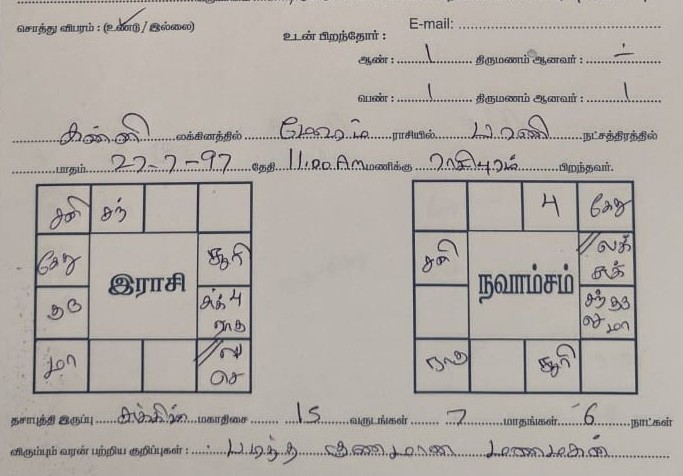 சொத்து விபரம் : (உண்டு / இல்லை)
E-mail:
உடன் பிறந்தோர் :
ஆண் : 1 திருமணம் ஆனவர் : -
பெண் : 1 திருமணம் ஆனவர் : 1
கன்னி லக்கினத்தில் மேஷம் ராசியில் பரணி நட்சத்திரத்தில்
பாதம் 27-7-97 தேதி 11.00 Am மணிக்கு ராசிபுரம் பிறந்தவர்.
சனி சந் 4 கேது
கேது சூரி சனி லக் சுக்
இராசி நவாம்சம்
குரு சுக் 4 ராகு சந் குரு செ மா
மா ல செ ராகு சூரி
தசாபுத்தி இருப்பு சுக்கிர மகாதிசை 15 வருடங்கள் 7 மாதங்கள் 6 நாட்கள்
விரும்பும் வரன் பற்றிய குறிப்புகள் : படித்த குணமான மணமகன்